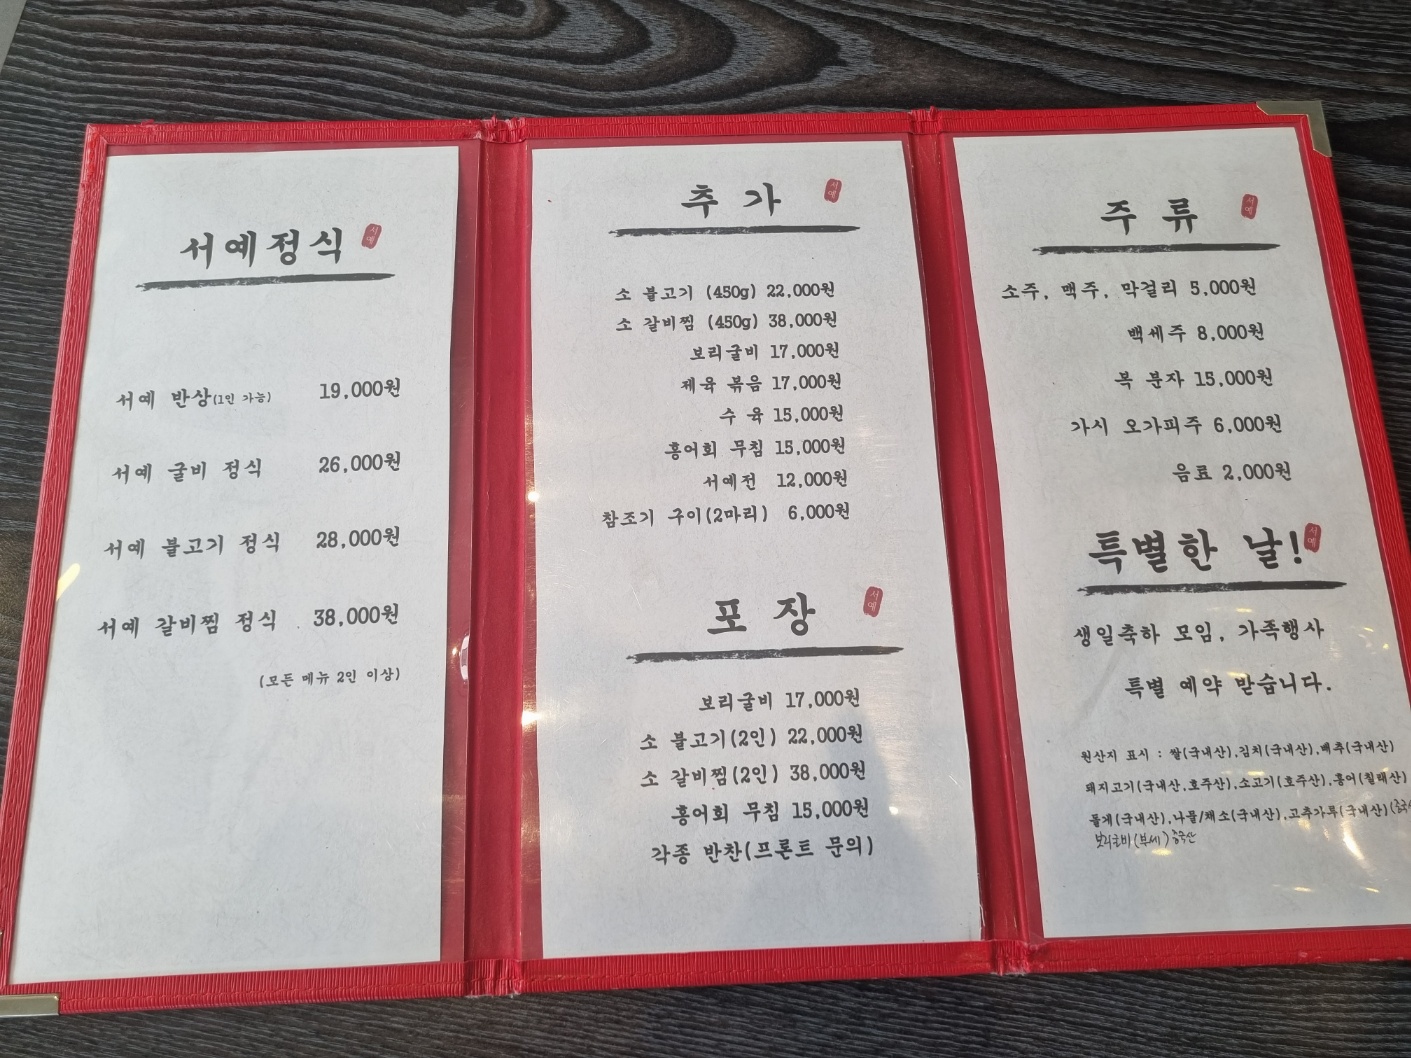 서예정식
서예
서예 반상(1인 가능) 19,000원
서예 굴비 정식 26,000원
서예 불고기 정식 28,000원
서예 갈비찜 정식 38,000원
(모든 메뉴 2인 이상)
추 가
서예
소 불고기 (450g) 22,000원
소 갈비찜 (450g) 38,000원
보리굴비 17,000원
제육 볶음 17,000원
수 육 15,000원
홍어회 무침 15,000원
서예전 12,000원
참조기 구이(2마리) 6,000원
포 장
서예
보리굴비 17,000원
소 불고기(2인) 22,000원
소 갈비찜(2인) 38,000원
홍어회 무침 15,000원
각종 반찬(프론트 문의)
주 류
서예
소주, 맥주, 막걸리 5,000원
백세주 8,000원
복 분자 15,000원
가시 오가피주 6,000원
음료 2,000원
특별한 날!
서예
생일축하 모임, 가족행사
특별 예약 받습니다.
원산지 표시 : 쌀(국내산),김치(국내산),배추(국내산)
돼지고기(국내산,호주산),소고기(호주산),홍어(칠레산)
돌게(국내산),나물/채소(국내산),고추가루(국내산)
보리굴비(부세)중국산